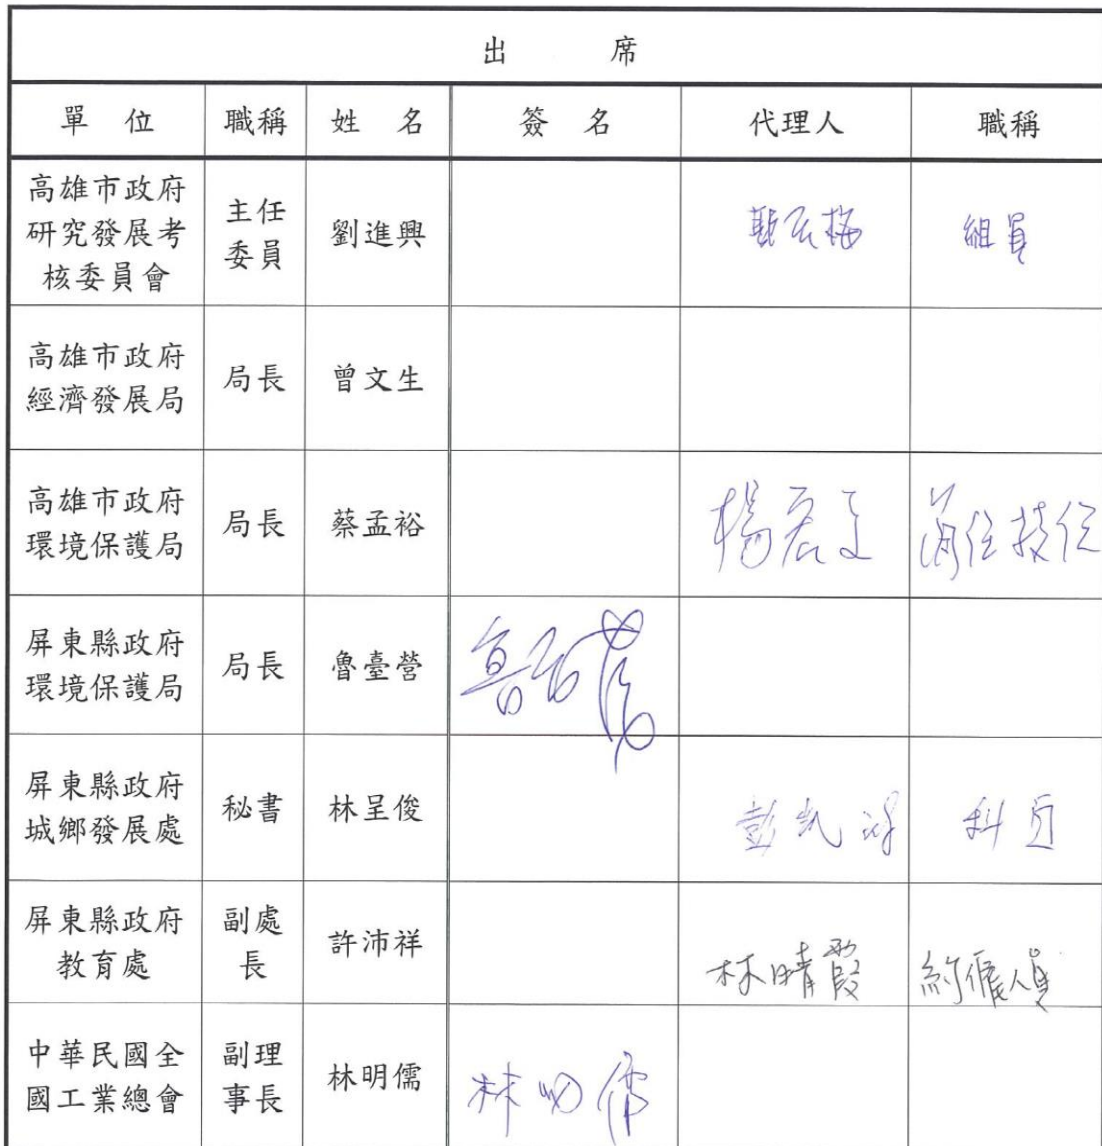 出 席
單 位 職稱 姓 名 簽 名 代理人 職稱
高雄市政府
研究發展考
核委員會
主任
委員
劉進興
組員
高雄市政府
經濟發展局
局長
曾文生
高雄市政府
環境保護局
局長
蔡孟裕
楊宏文
簡任技正
屏東縣政府
環境保護局
局長
魯臺營
魯台營
屏東縣政府
城鄉發展處
秘書
林呈俊
科員
屏東縣政府
教育處
副處
長
許沛祥
林晴霞
約僱人員
中華民國全
國工業總會
副理
事長
林明儒
林明儒